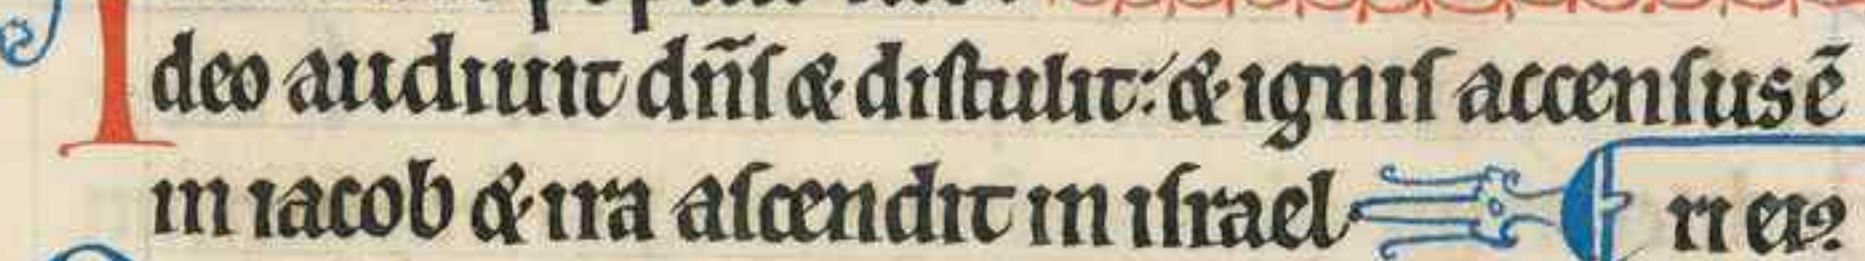 Ideo audiuit dñſ & diſtulit: & igniſ accenſus ē
in iacob & ira aſcendit in iſrael. ri eiꝰ